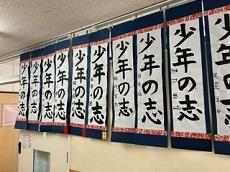 少年の志
少年の志
少年の志
少年の志
少年の志
少年の志
少年の志
少年の志
少年の志